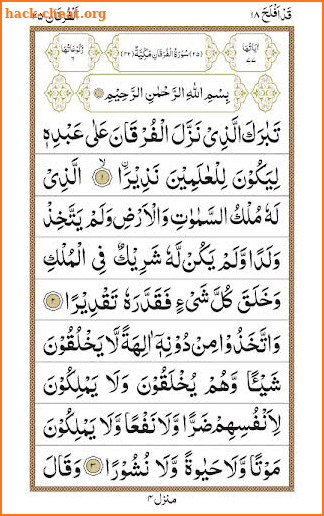 hack-cheat.org
قَدْ اَفْلَحَ ١٨
اَلْفُرْقَان ٢٥
اٰيَاتُهَا ٧٧
(٢٥) سُوْرَةُ الْفُرْقَانِ مَكِّيَّةٌ (٤٢)
رُكُوْعَاتُهَا ٦
بِسْمِ اللّٰهِ الرَّحْمٰنِ الرَّحِيْمِ
تَبٰرَكَ الَّذِيْ نَزَّلَ الْفُرْقَانَ عَلٰى عَبْدِهٖ
لِيَكُوْنَ لِلْعٰلَمِيْنَ نَذِيْرَا ۙ﴿١﴾ الَّذِيْ
لَهٗ مُلْكُ السَّمٰوٰتِ وَالْاَرْضِ وَلَمْ يَتَّخِذْ
وَلَدًا وَّلَمْ يَكُنْ لَّهٗ شَرِيْكٌ فِي الْمُلْكِ
وَخَلَقَ كُلَّ شَيْءٍ فَقَدَّرَهٗ تَقْدِيْرًا ﴿٢﴾
وَاتَّخَذُوْا مِنْ دُوْنِهٖٓ اٰلِهَةً لَّا يَخْلُقُوْنَ
شَيْـًٔا وَّهُمْ يُخْلَقُوْنَ وَلَا يَمْلِكُوْنَ
لِاَنْفُسِهِمْ ضَرًّا وَّلَا نَفْعًا وَّلَا يَمْلِكُوْنَ
مَوْتًا وَّلَا حَيٰوةً وَّلَا نُشُوْرًا ﴿٣﴾ وَقَالَ
منزل ٤
hack-cheat.org